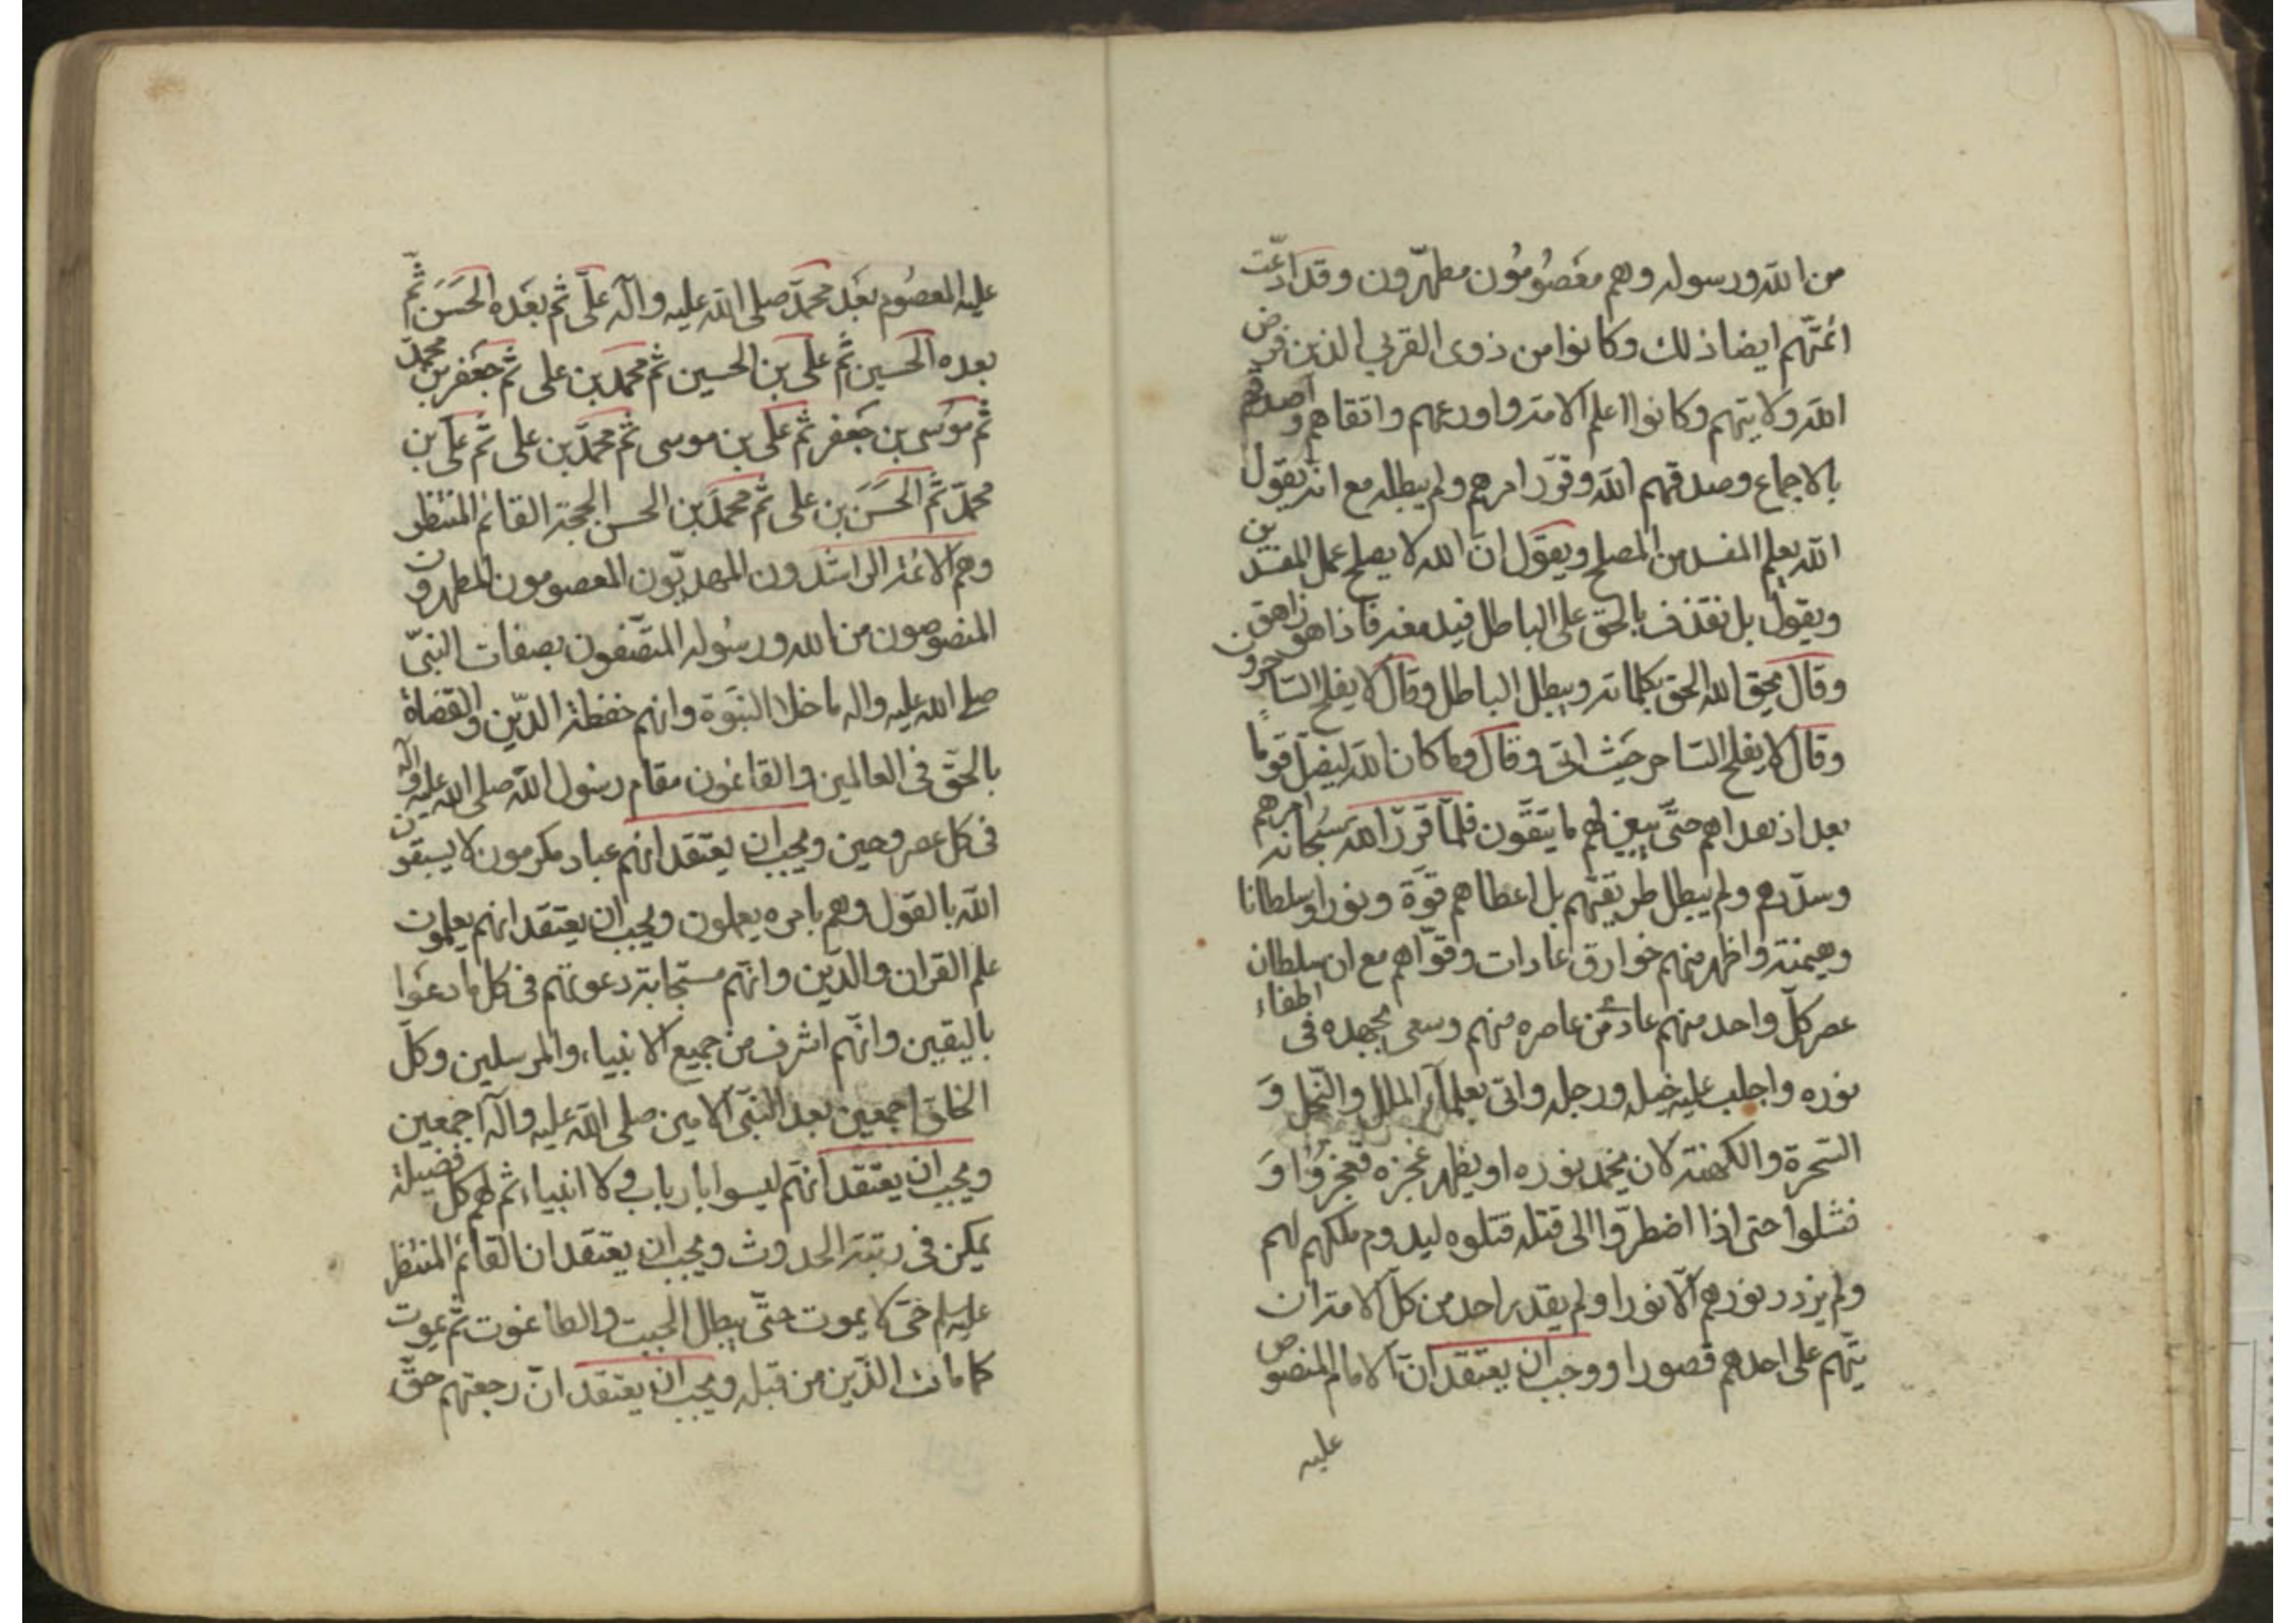 من الله ورسوله وهم معصومون مطهّرون وقد ادّعت
ائمّتهم ايضا ذلك وكانوا من ذوى القربى الذين فرض
الله ولايتهم وكانوا اعلم الامة واورعهم واتقاهم واصدقهم
بالاجماع وصدقهم الله وقرّر امرهم ولم يبطله مع انه يقول
الله يعلم المفسد من المصلح ويقول انّ الله لا يصلح عمل المفسدين
ويقول بل نقذف بالحق على الباطل فيدمغه فاذا هو زاهق
وقال يحق الله الحق بكلماته ويبطل الباطل وقال لا يفلح الساحرون
وقال لا يفلح الساحر حيث اتى وقال وما كان الله ليضلّ قوماً
بعد اذ هداهم حتّى يبيّن لهم ما يتّقون فلمّا قرّر الله سبحانه امرهم
وسدّدهم ولم يبطل طريقتهم بل اعطاهم قوّة ونورا وسلطانا
وهيمنة واظهر منهم خوارق عادات وقوّاهم مع ان سلطان
عصر كلّ واحد منهم عادى من عاصره منهم وسعى بجهده فى اطفاء
نوره واجلب عليه خيله ورجله واتى بعلماء الملل والنّحل وَ
السّحرة والكهنة لان يخمد نوره او يظهر عجزه فعجزوا وَ
فشلوا حتى اذا اضطرّوا الى قتله قتلوه ليدوم ملكهم لهم
ولم يزدد نورهم الّا نورا ولم يقدر احد من كلّ الامة ان
يتّهم على احدهم قصورا ووجب ان يعتقد انّ الامام المنصوص
عليه
عليه المعصوم بعد محمّد صلى الله عليه وآله علىّ ثم بعده الحَسَن ثمّ
بعده الحسين ثمّ على بن الحسين ثمّ محمد بن على ثمّ جعفر بن محمّد
ثمّ موسى بن جعفر ثمّ على بن موسى ثمّ محمّد بن على ثمّ على بن
محمّد ثمّ الحَسَن بن على ثمّ محمّد بن الحسن الحجة القائم المنتظر
وهم الائمّة الراشدون المهديّون المعصومون المطهرون
المنصوصون من الله ورسوله المتّصفون بصفات النبىّ
صلى الله عليه واله ما خلا النبوّة وانهم حفظة الدّين والقضاة
بالحقّ فى العالمين والقائمون مقام رسول الله صلى الله عليه وآله
فى كل عصر وحين ويجب ان يعتقد انهم عباد مكرمون لا يسبقون
الله بالقول وهم بامره يعملون ويجب ان يعتقد انهم يعلمون
علم القران والدّين وانّهم مستجابة دعوتهم فى كل ما دعوا
باليقين وانّهم اشرف من جميع الانبياء والمرسلين وكلّ
الخلق اجمعين بعد النبّى الامين صلى الله عليه وآله اجمعين
ويجب ان يعتقد انّهم ليسوا بارباب ولا انبياء ثم لهم كل فضيلة
يمكن فى رتبة الحدوث ويجب ان يعتقد ان القائم المنتظر
عليه سلم حىّ لا يموت حتّى يبطل الجبت والطاغوت ثمّ يموت
كما مات الذّين من قبله ويجب ان يعتقد انّ رجعتهم حقّ